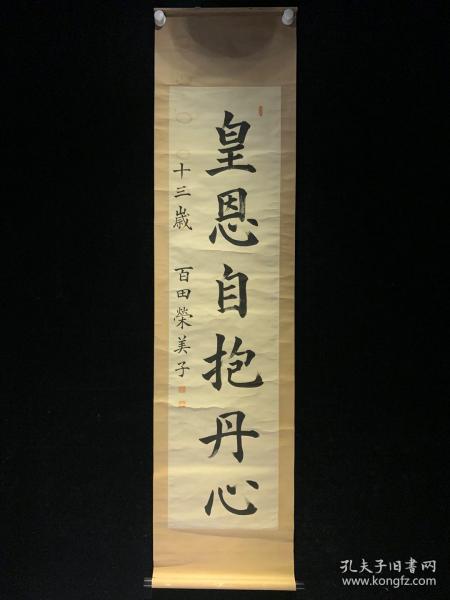 皇恩自抱丹心
十三歲 百田榮美子
孔夫子旧书网
www.kongfz.com